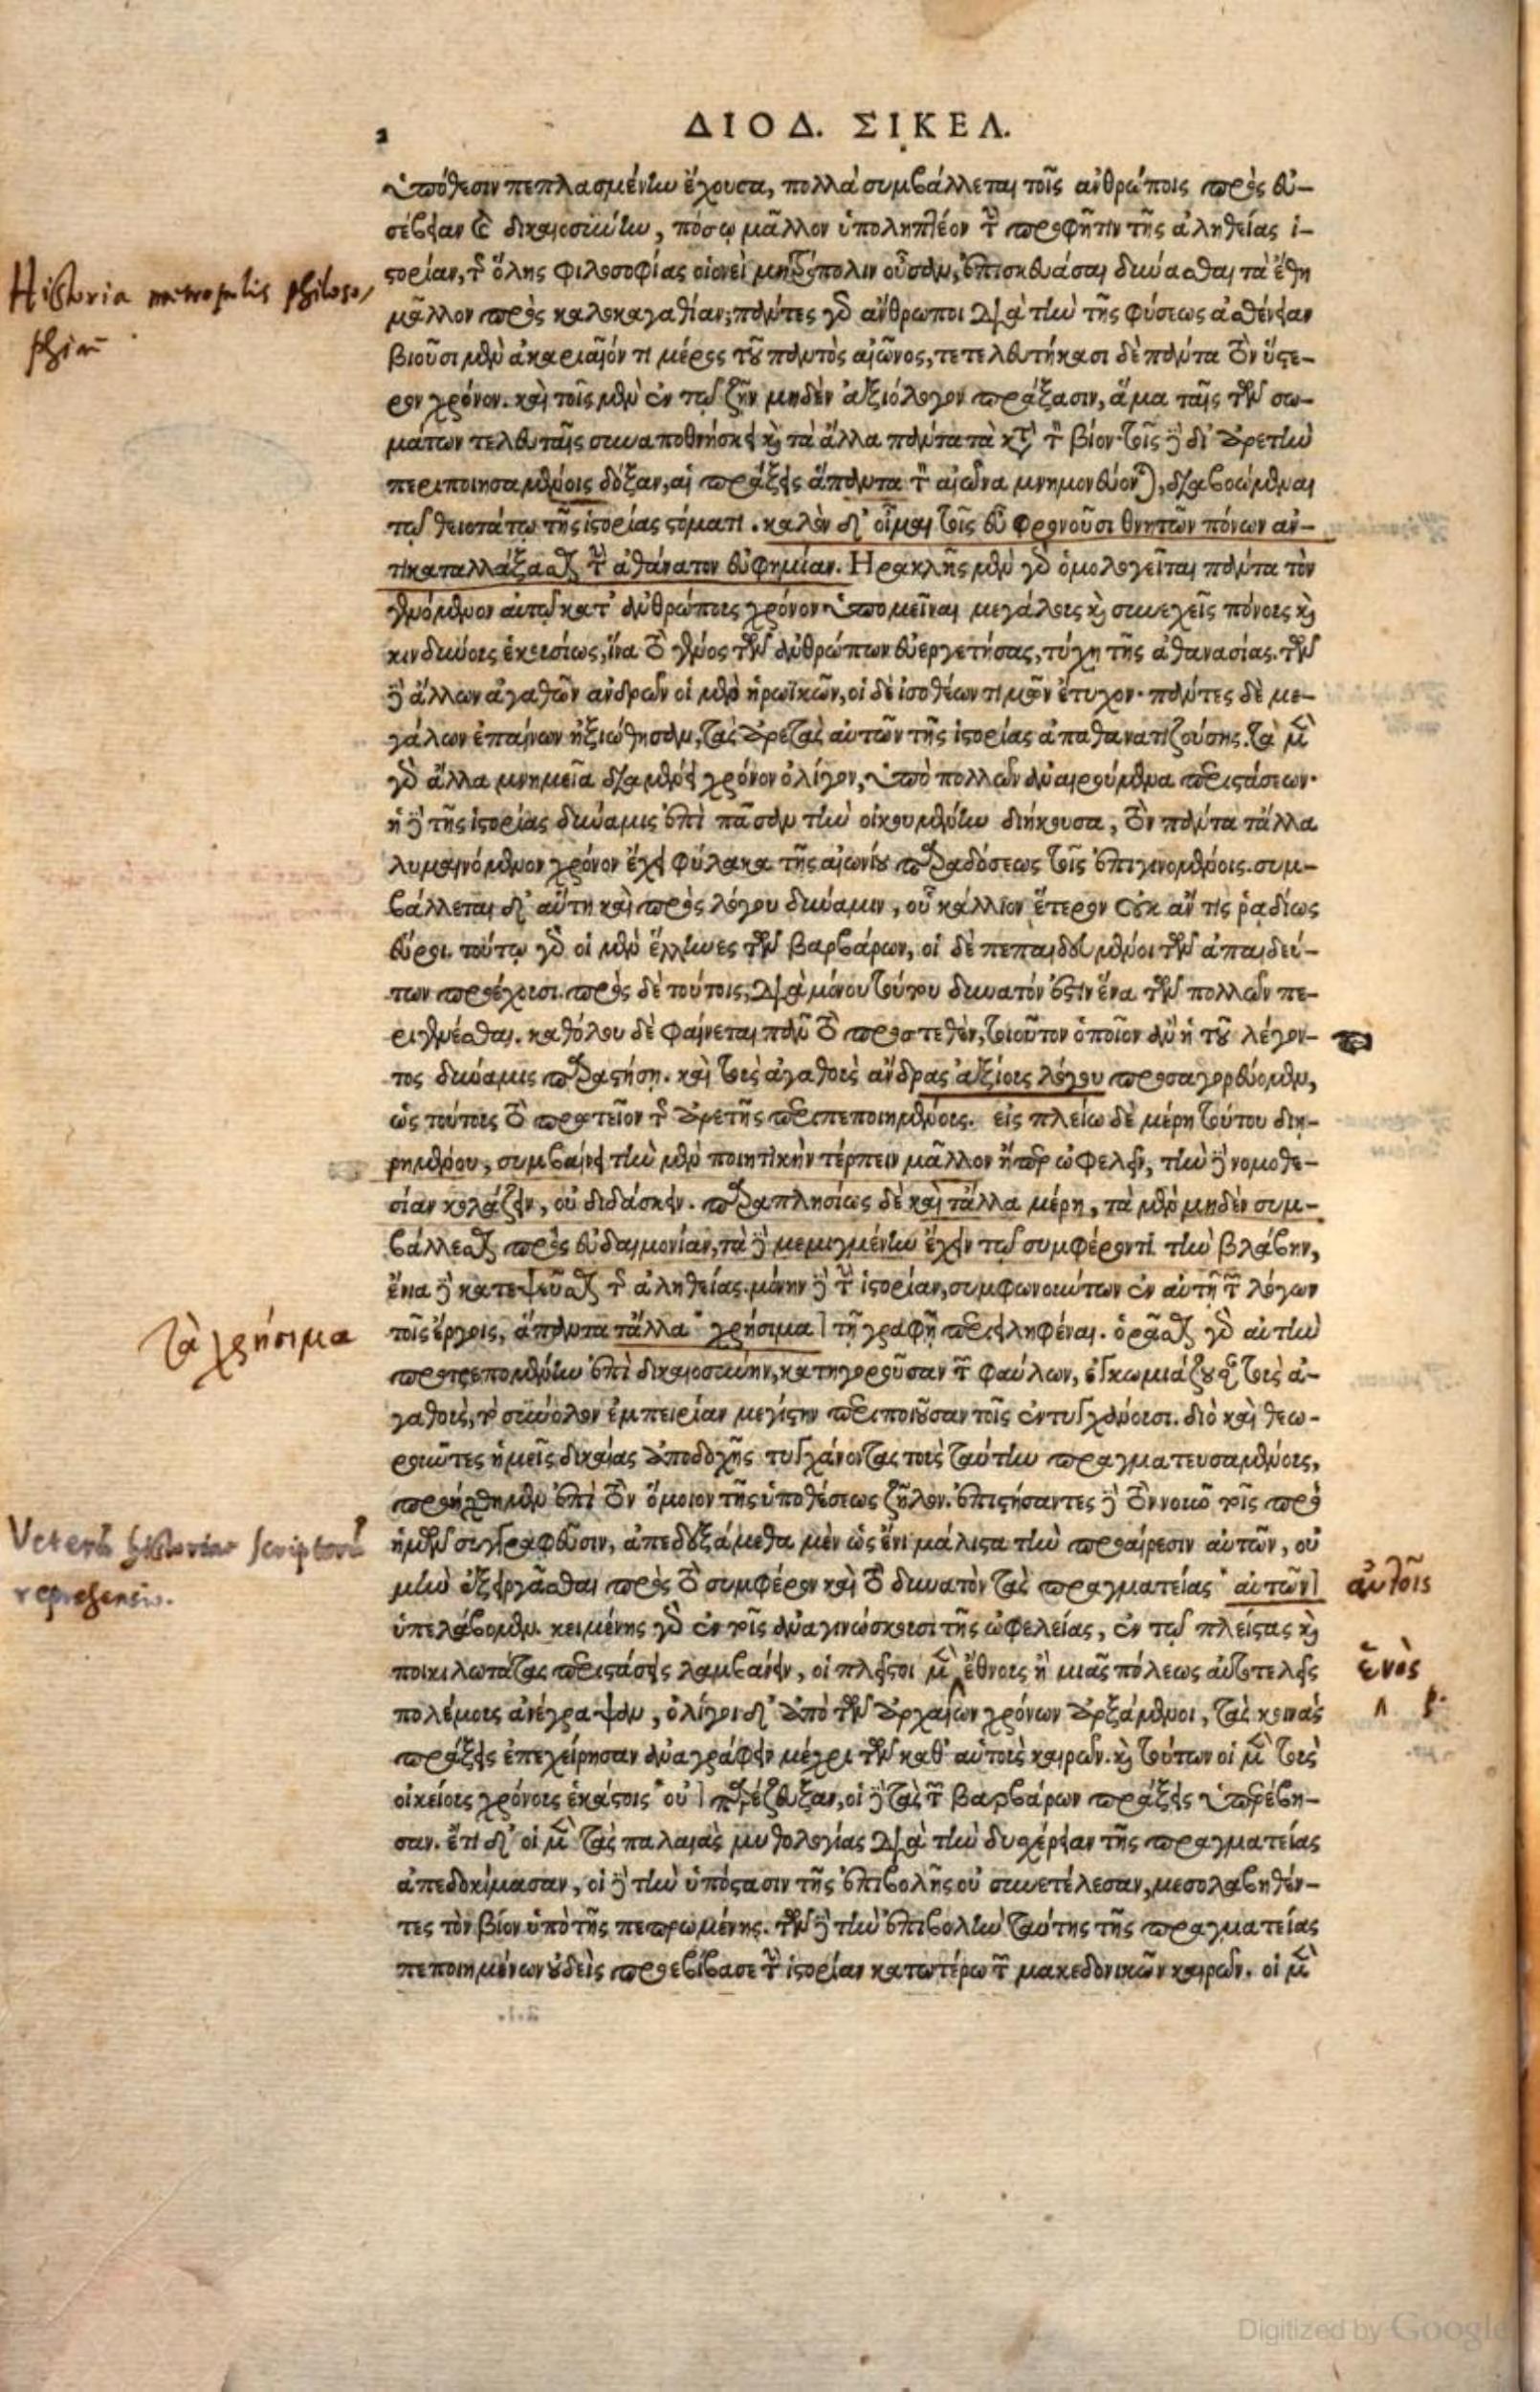 2
ΔΙΟΔ. ΣΙΚΕΛ.
ὑπόθεσιν πεπλασμένην ἔχουσα, πολλὰ συμβάλλεται τοῖς ἀνθρώποις πρὸς εὐ-
σέβειαν καὶ δικαιοσύνην, πόσῳ μᾶλλον ὑποληπτέον τὴν προφῆτιν τῆς ἀληθείας ἱ-
στορίαν, τῆς ὅλης φιλοσοφίας οἱονεὶ μητρόπολιν οὖσαν, ἐπισκευάσαι δύνασθαι τὰ ἔθη
μᾶλλον πρὸς καλοκαγαθίαν; πάντες γὰρ ἄνθρωποι διὰ τὴν τῆς φύσεως ἀσθένειαν
βιοῦσι μὲν ἀκαριαῖόν τι μέρος τοῦ παντὸς αἰῶνος, τετελευτήκασι δὲ πάντα τὸν ὕστε-
ρον χρόνον. καὶ τοῖς μὲν ἐν τῷ ζῆν μηδὲν ἀξιόλογον πράξασιν, ἅμα ταῖς τῶν σω-
μάτων τελευταῖς συναποθνήσκει καὶ τὰ ἄλλα πάντα τὰ κατὰ τὸν βίον· τοῖς δὲ δι' ἀρετὴν
περιποιησαμένοις δόξαν, αἱ πράξεις ἅπαντα τὸν αἰῶνα μνημονεύονται, διαβοώμεναι
τῷ θειοτάτῳ τῆς ἱστορίας στόματι. καλὸν δ' οἶμαι τοῖς εὖ φρονοῦσι θνητῶν πόνων ἀν-
τικαταλλάξασθαι τὴν ἀθάνατον εὐφημίαν. Ηρακλῆς μὲν γὰρ ὁμολογεῖται πάντα τὸν
γενόμενον αὐτῷ κατ' ἀνθρώπους χρόνον ὑπομεῖναι μεγάλους καὶ συνεχεῖς πόνους καὶ
κινδύνους ἑκουσίως, ἵνα τὸ γένος τῶν ἀνθρώπων εὐεργετήσας, τύχῃ τῆς ἀθανασίας. τῶν
δὲ ἄλλων ἀγαθῶν ἀνδρῶν οἱ μὲν ἡρωϊκῶν, οἱ δὲ ἰσοθέων τιμῶν ἔτυχον· πάντες δὲ με-
γάλων ἐπαίνων ἠξιώθησαν, τὰς ἀρετὰς αὐτῶν τῆς ἱστορίας ἀπαθανατιζούσης. τὰ μὲν
γὰρ ἄλλα μνημεῖα διαμένει χρόνον ὀλίγον, ὑπὸ πολλῶν ἀναιρούμενα περιστάσεων·
ἡ δὲ τῆς ἱστορίας δύναμις ἐπὶ πᾶσαν τὴν οἰκουμένην διήκουσα, τὸν πάντα τἄλλα
λυμαινόμενον χρόνον ἔχει φύλακα τῆς αἰωνίου παραδόσεως τοῖς ἐπιγινομένοις. συμ-
βάλλεται δ' αὕτη καὶ πρὸς λόγου δύναμιν, οὗ κάλλιον ἕτερον οὐκ ἄν τις ῥᾳδίως
εὕροι. τούτῳ γὰρ οἱ μὲν ἕλληνες τῶν βαρβάρων, οἱ δὲ πεπαιδευμένοι τῶν ἀπαιδεύ-
των προέχουσι. πρὸς δὲ τούτοις, διὰ μόνου τούτου δυνατόν ἐστιν ἕνα τῶν πολλῶν πε-
ριγενέσθαι. καθόλου δὲ φαίνεται πᾶν τὸ προστεθὲν, τοιοῦτον ὁποῖον ἂν ἡ τοῦ λέγον-
τος δύναμις παραστήσῃ. καὶ τοὺς ἀγαθοὺς ἄνδρας ἀξίους λόγου προσαγορεύομεν,
ὡς τούτους τὸ πρωτεῖον τῆς ἀρετῆς περιπεποιημένους. εἰς πλείω δὲ μέρη τούτου διῃ-
ρημένου, συμβαίνει τὴν μὲν ποιητικὴν τέρπειν μᾶλλον ἤπερ ὠφελεῖν, τὴν δὲ νομοθε-
σίαν κολάζειν, οὐ διδάσκειν. παραπλησίως δὲ καὶ τἄλλα μέρη, τὰ μὲν μηδὲν συμ-
βάλλεσθαι πρὸς εὐδαιμονίαν, τὰ δὲ μεμιγμένην ἔχειν τῷ συμφέροντι τὴν βλάβην,
ἔνια δὲ κατεψεῦσθαι τῆς ἀληθείας. μόνην δὲ τὴν ἱστορίαν, συμφωνούντων ἐν αὐτῇ τῶν λόγων
τοῖς ἔργοις, ἅπαντα τἄλλα * χρήσιμα] τῇ γραφῇ περιειληφέναι. ὁρᾶσθαι γὰρ αὐτὴν
προτρεπομένην ἐπὶ δικαιοσύνην, κατηγοροῦσαν τῶν φαύλων, ἐγκωμιάζουσαν τοὺς ἀ-
γαθοὺς, τὸ σύνολον ἐμπειρίαν μεγίστην περιποιοῦσαν τοῖς ἐντυγχάνουσι. διὸ καὶ θεω-
ροῦντες ἡμεῖς δικαίας ἀποδοχῆς τυγχάνοντας τοὺς ταύτην πραγματευσαμένους,
προήχθημεν ἐπὶ τὸν ὅμοιον τῆς ὑποθέσεως ζῆλον. ἐπιστήσαντες δὲ τὸν νοῦν τοῖς πρὸ
ἡμῶν συγγραφεῦσιν, ἀπεδεξάμεθα μὲν ὡς ἔνι μάλιστα τὴν προαίρεσιν αὐτῶν, οὐ
μὴν ἐξειργάσθαι πρὸς τὸ συμφέρον καὶ τὸ δυνατὸν τὰς πραγματείας * αὐτῶν]
ὑπελάβομεν. κειμένης γὰρ ἐν τοῖς ἀναγινώσκουσι τῆς ὠφελείας, ἐν τῷ πλείστας καὶ
ποικιλωτάτας περιστάσεις λαμβάνειν, οἱ πλεῖστοι μὲν ἔθνους ἢ μιᾶς πόλεως αὐτοτελεῖς
πολέμους ἀνέγραψαν, ὀλίγοι δ' ἀπὸ τῶν ἀρχαίων χρόνων ἀρξάμενοι, τὰς κοινὰς
πράξεις ἐπεχείρησαν ἀναγράφειν μέχρι τῶν καθ' αὑτοὺς καιρῶν. καὶ τούτων οἱ μὲν τοὺς
οἰκείους χρόνους ἑκάστοις * οὐ] παρέζευξαν, οἱ δὲ τὰς τῶν βαρβάρων πράξεις ὑπερέβη-
σαν. ἔτι δ' οἱ μὲν τὰς παλαιὰς μυθολογίας διὰ τὴν δυσχέρειαν τῆς πραγματείας
ἀπεδοκίμασαν, οἱ δὲ τὴν ὑπόστασιν τῆς ἐπιβολῆς οὐ συνετέλεσαν, μεσολαβηθέν-
τες τὸν βίον ὑπὸ τῆς πεπρωμένης. τῶν δὲ τὴν ἐπιβολὴν ταύτης τῆς πραγματείας
πεποιημένων οὐδεὶς προεβίβασε τὴν ἱστορίαν κατωτέρω τῶν μακεδονικῶν καιρῶν. οἱ μὲν
Historia metropolis philoso-
phiæ
τὰ χρήσιμα
Veteres historiae scriptores
reprehensi.
αὐτοῖς
ἑνὸς
Digitized by Google